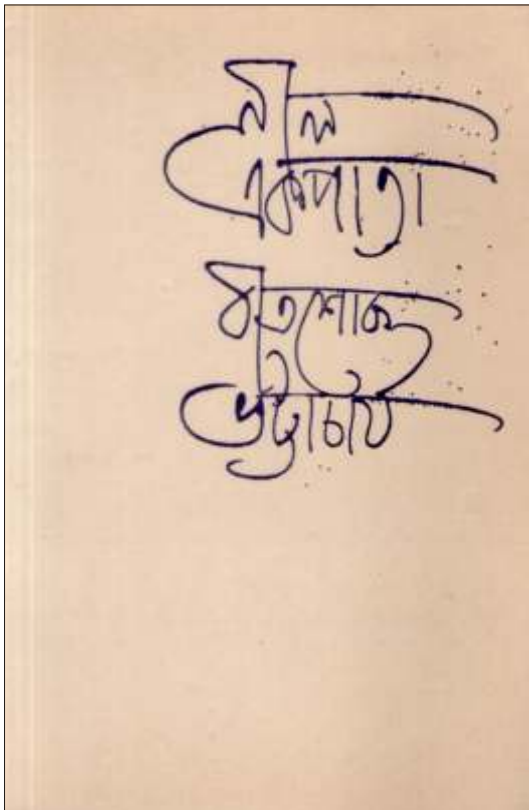 নীল
একপাতা
বীতশোক
ভট্টাচার্য